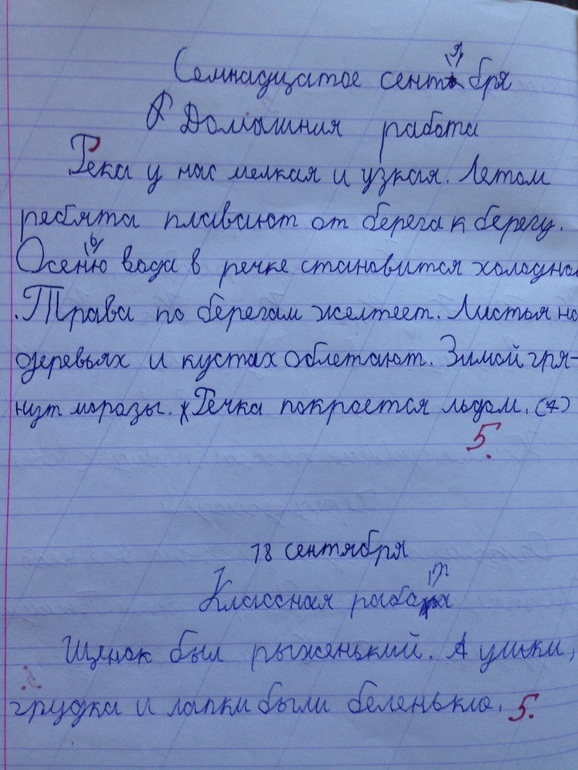 Семнадцатое сентября
Домашния работа
Река у нас мелкая и узкая. Летом
ребята плавают от берега к берегу.
Осенью вода в речке становится холодной
.Трава по берегам желтеет. Листья на
деревьях и кустах облетают. Зимой гря-
нут морозы. Речка покроется льдом. (4)
5.
18 сентября
Классная работа
Щенок был рыженький. А ушки,
грудка и лапки были беленькие.
5.